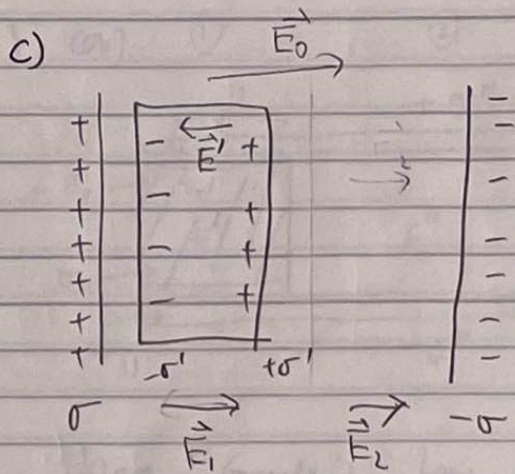 c)
E₀
+ - E' + -
+ - -
+ - + -
+ - + -
+ - + -
+ -
+ -
σ -σ' +σ' -σ
E₁ E₂